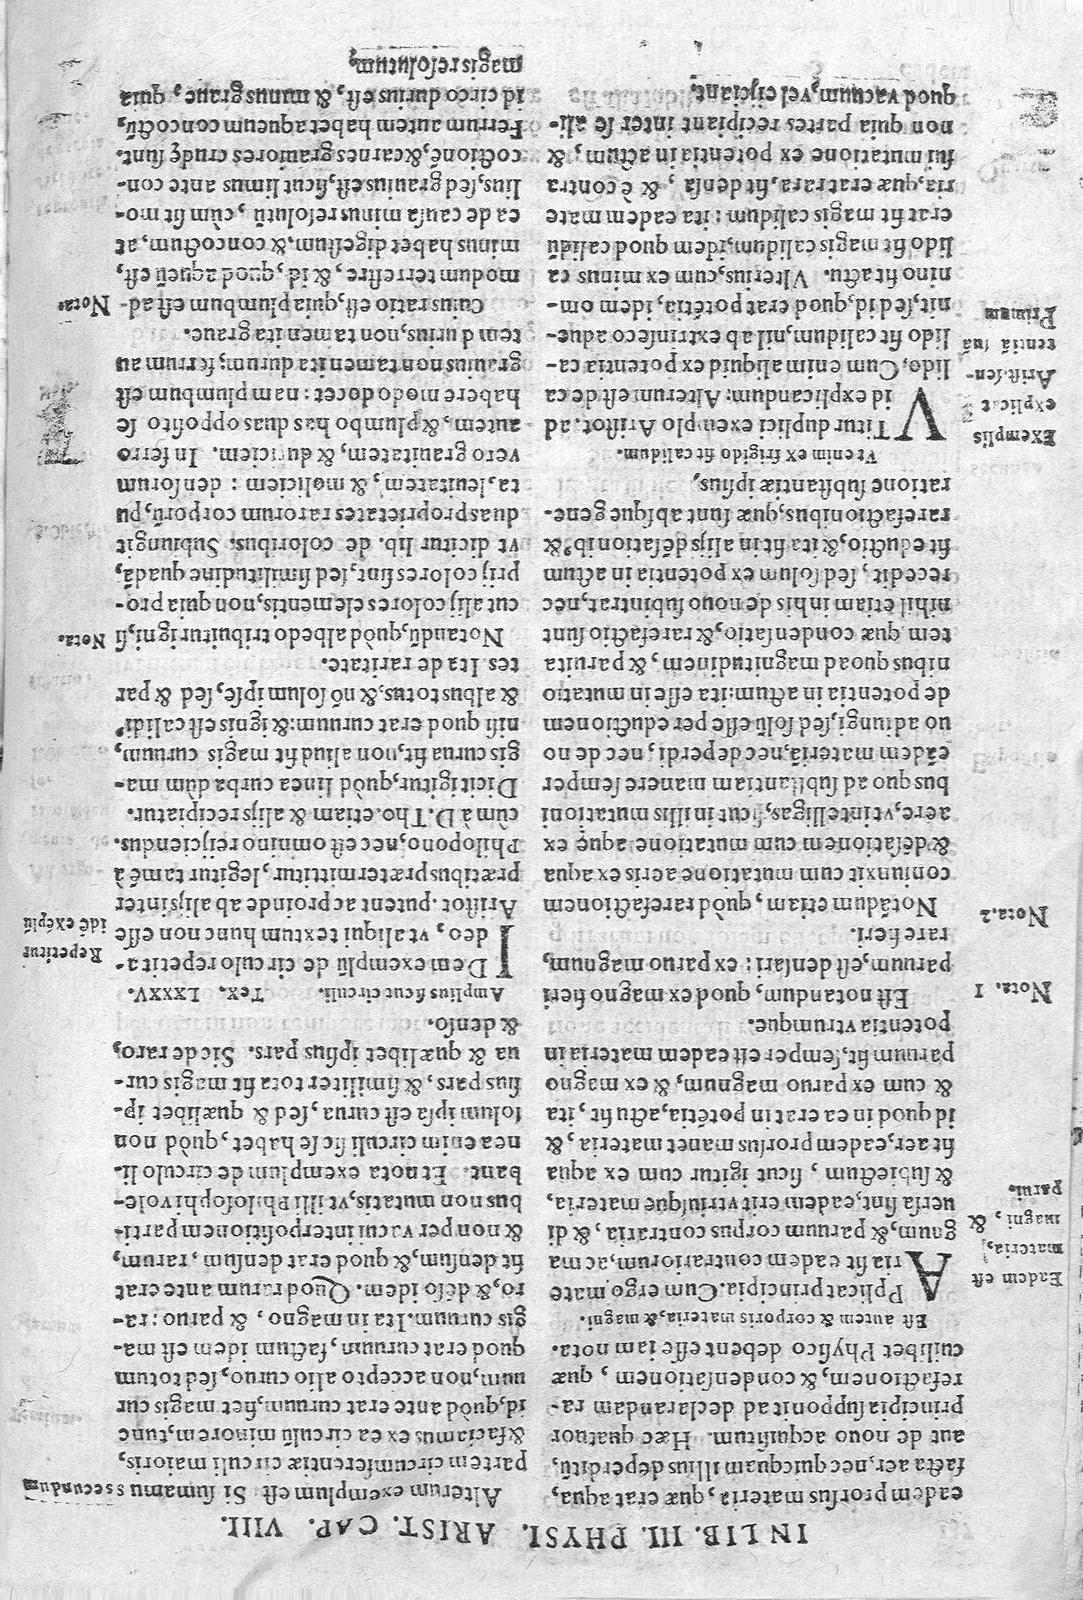 IN LIB. III. PHYSI. ARIST. CAP. VIII.
eadem prorſus materia, quæ erat aqua,
facta aer, nec quicquam illius deperditũ,
aut de nouo acquiſitum. Hæc quatuor
principia ſupponit ad declarandam ra-
refactionem, & condenſationem, quæ
cuilibet Phyſico debent eſſe iam nota.
Eſt autem & corporis materia, & magni.
APplicat principia. Cum ergo mate
ria ſit eadem contrariorum, ac ma
gnum, & paruum corpus contraria, & di
uerſa ſint, eadem erit vtriuſque materia,
& ſubiectum, ſicut igitur cum ex aqua
fit aer, eadem prorſus manet materia, &
id quod in ea erat in potẽtia, actu fit, ita
& cum ex paruo magnum, & ex magno
paruum fit, ſemper eſt eadem materia in
potentia vtrumque.
Eadem eſt
materia,
magni, &
parui.
Eſt notandum, quod ex magno fieri
paruum, eſt denſari: ex paruo magnum,
rare fieri.
Nota. 1
Notãdum etiam, quòd rarefactionem
coniunxit cum mutatione aeris ex aqua
& dẽſationem cum mutatione aquę ex
aere, vt intelligas, ſicut in illis mutationi
bus quo ad ſubſtantiam manere ſemper
eãdem materiã, nec deperdi, nec de no
uo adiungi, ſed ſolũ eſſe per eductionem
de potentia in actum: ita eſſe in mutatio
nibus quo ad magnitudinem, & paruita
tem, quæ condenſatio, & rarefactio ſunt
nihil etiam in his de nouo ſubintrat, nec
recedit, ſed ſolum ex potentia in actum
fit eductio, & ita fit in alijs dẽſationib9 &
rarefactionibus, quæ ſunt abſque gene-
ratione ſubſtantiæ ipſius,
Nota. 2
Vt enim ex frigido fit calidum.
VTitur duplici exemplo Ariſtot. ad
id explicandum: Alterum eſt de ca
lido, Cum enim aliquid ex potentia ca-
lido fit calidum, nil ab extrinſeco adue-
nit, ſed id, quod erat potẽtia, idem om-
nino fit actu. Vlterius, cum ex minus ca
lido fit magis calidum, idem quod calidũ
erat fit magis calidum: ita eadem mate
ria, quæ erat rara, fit denſa, & è contra
ſui mutatione ex potentia in actum, &
non quia partes recipiant inter ſe ali-
quod vacuum, vel eijciant.
Exemplis
explicat
Ariſt. ſen-
tentiã ſuã
Primum
Alterum exemplum eſt Si ſumamus
partem circumferentiæ circuli maioris,
& faciamus ex ea circulũ minorem, tunc
id, quòd ante erat curuum, fiet magis cur
uum, non accepto alio curuo, ſed totum
quod erat curuum, factum idem eſt ma-
gis curuum. Ita in magno, & paruo: ra-
ro, & dẽſo idem. Quod rarum ante erat
fit denſum, & quod erat denſum, rarum,
& non per vacui interpoſitionem parti-
bus non mutatis, vt illi Philoſophi vole-
bant. Et nota exemplum de circulo li-
nea enim circuli ſic ſe habet, quòd non
ſolum ipſa eſt curua, ſed & quælibet ip-
ſius pars, & ſimiliter tota fit magis cur-
ua & quælibet ipſius pars. Sic de raro,
& denſo.
secundum
Amplius ſicut circuli. Tex. LXXXV.
IDem exemplũ de circulo repetit a-
deo, vt aliqui textum hunc non eſſe
Ariſtot. putent ac proinde ab alijs inter
prætibus prætermittitur, legitur tamẽ à
Philopono, nec eſt omnino reijciendus.
cùm à D. Tho. etiam & alijs recipiatur.
Repetitur
idẽ exẽplũ
Dicit igitur, quòd linea curba dùm ma-
gis curua fit, non aliud fit magis curuum,
niſi quod erat curuum: & ignis eſt calid9,
& albus totus, & nõ ſolum ipſe, ſed & par
tes. Ita de raritate.
Notandũ, quòd albedo tribuitur igni, ſi
cut alij colores elementis, non quia pro-
prij colores ſint, ſed ſimilitudine quadã,
vt dicitur lib. de coloribus. Subiungit
duas proprietates rarorum corporũ, pu
ta, leuitatem, & moliciem: denſorum
vero grauitatem, & duriciem. In ferro
autem, & plumbo has duas oppoſito ſe
habere modo docet: nam plumbum eſt
grauius non tamen ita durum; ferrum au
tem durius, non tamen ita graue.
Nota.
Cuius ratio eſt, quia plumbum eſt ad-
modum terreſtre, & id, quod aqueũ eſt,
minus habet digeſtum, & concoctum, at
ea de cauſa minus reſolutũ, cùm fit mo-
lius, ſed grauius eſt, ſicut limus ante con-
coctionẽ, & carnes grauiores crudę ſunt.
Ferrum autem habet aqueum concoctũ,
id circo durius eſt, & minus graue, quia
magis reſolutum.
Nota.